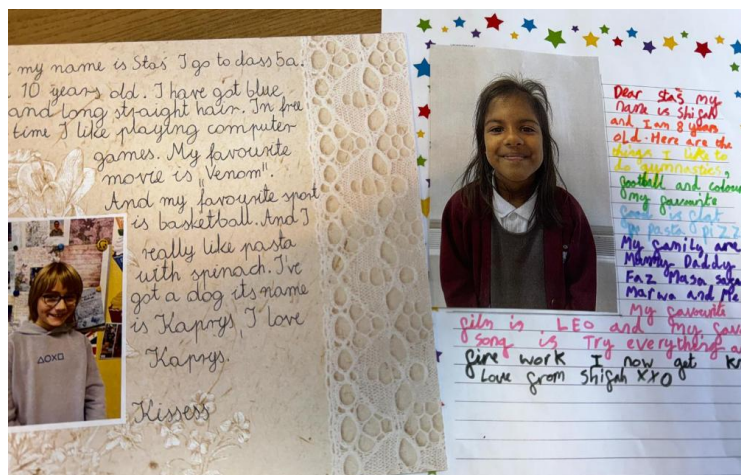 my name is Staś I go to class 5a.
10 years old. I have got blue
and long straight hair. In free
time I like playing computer
games. My favourite
movie is „Venom".
And my favourite sport
is basketball. And I
really like pasta
with spinach. I've
got a dog its name
is Kaprys, I love
Kaprys.
Kissess
△O×□
Dear Staś my
name is Shifah
and I am 8 years
old. Here are the
things I like to
do gymnastics,
football and colour
my favourite
food is
pasta pizz
My family are
Mummy Daddy
Faz Mason
Marwa and Me
My favourite
film is LEO and my fav
song is Try everything a
fire work I now get
Love from Shifah XXO